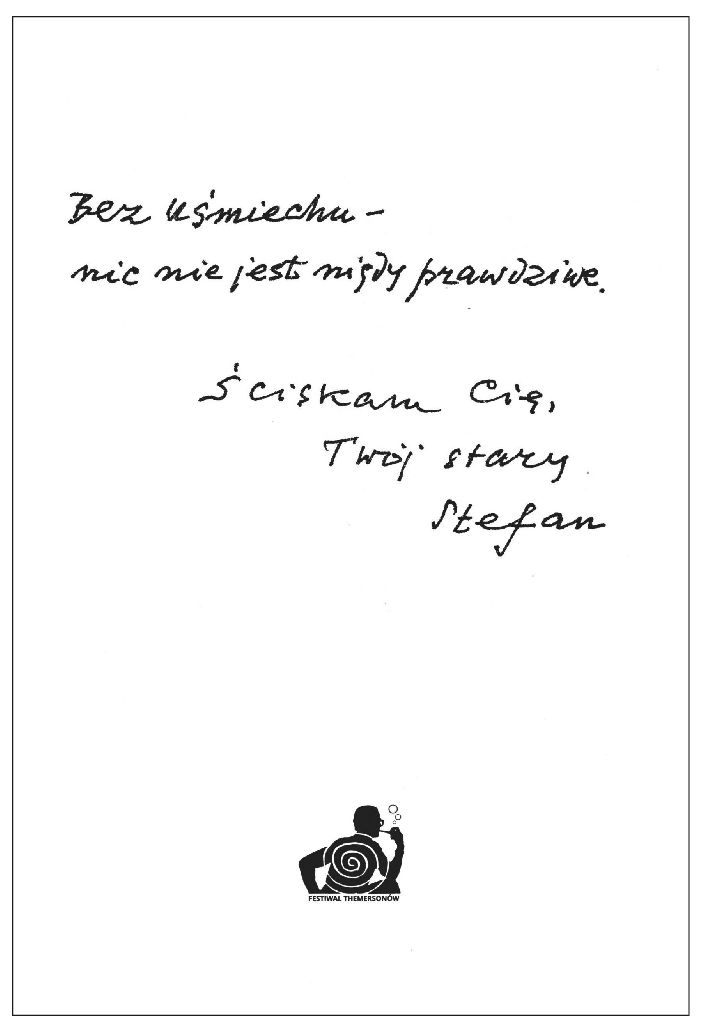 Bez uśmiechu –
nic nie jest nigdy prawdziwe.
Ściskam Cię,
Twój stary
Stefan
FESTIWAL THEMERSONÓW